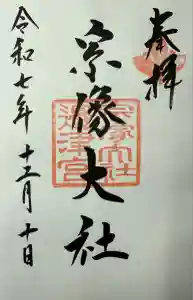 奉拝
宗像大社
宗像大社
辺津宮
令和七年十二月十日